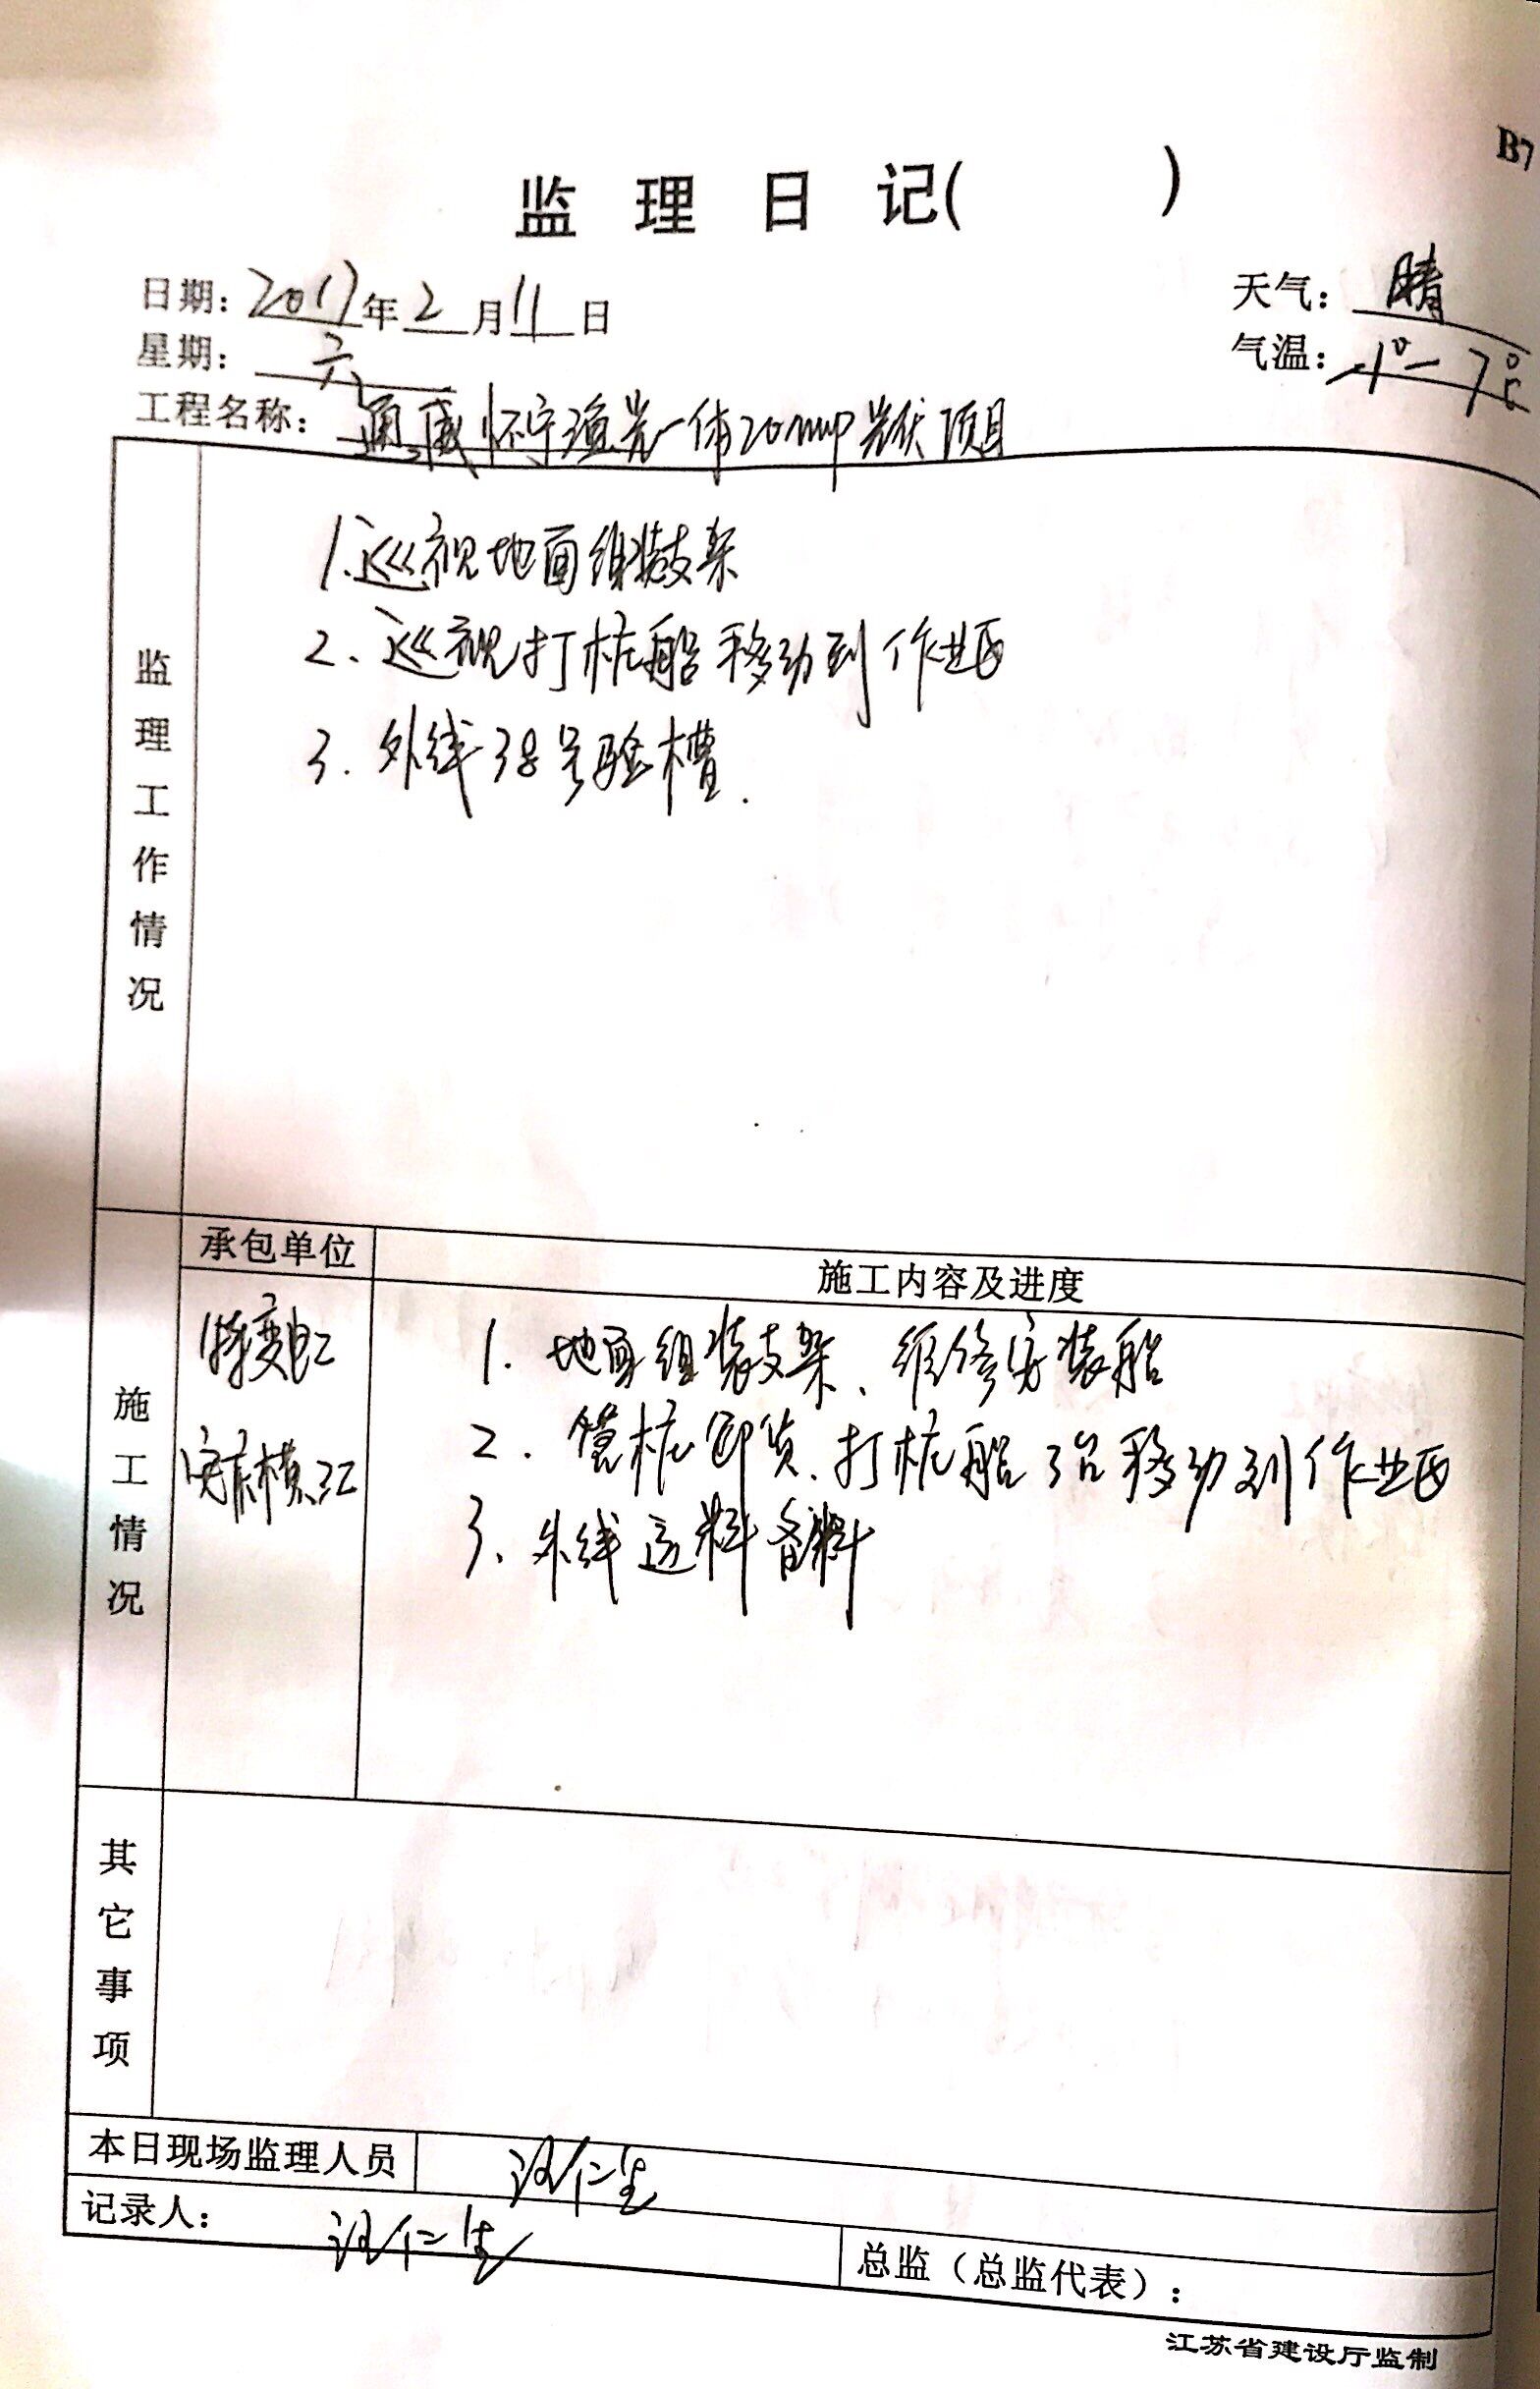 B7
监理日记( )
日期：2017年2月11日
天气：晴
星期：六
气温：-1°—7℃
工程名称：通威怀宁渔光一体20mwp光伏项目
监理工作情况
1.巡视地面组装支架
2、巡视打桩船移动到作业区
3.外线38号验槽.
施工情况
承包单位
施工内容及进度
特变电工
1.地面组装支架、维修安装船
2.管桩卸货、打桩船3台移动到作业区
3、外线运料备料
其它事项
本日现场监理人员
仁生
记录人：
仁生
总监（总监代表）：
江苏省建设厅监制